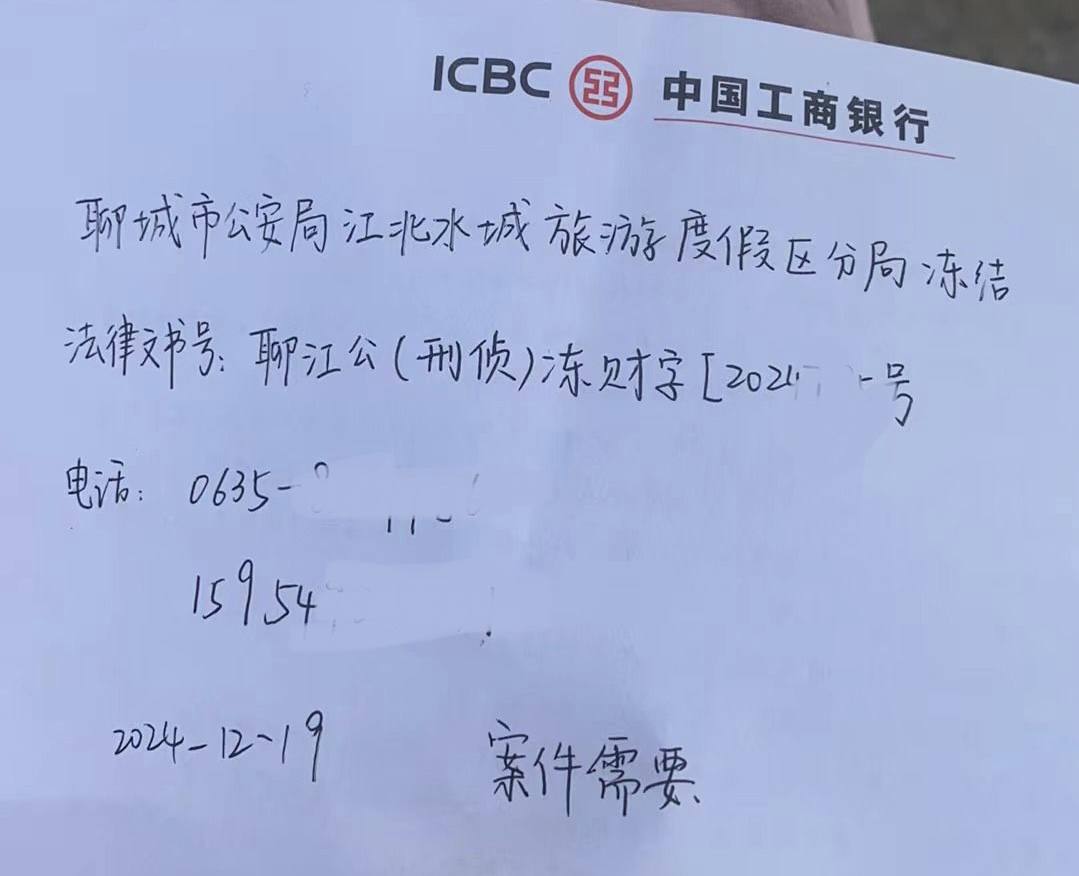 ICBC 中国工商银行
聊城市公安局江北水城旅游度假区分局冻结
法律文书号：聊江公(刑侦)冻财字[202 号
电话：0635-
15954
2024-12-19 案件需要